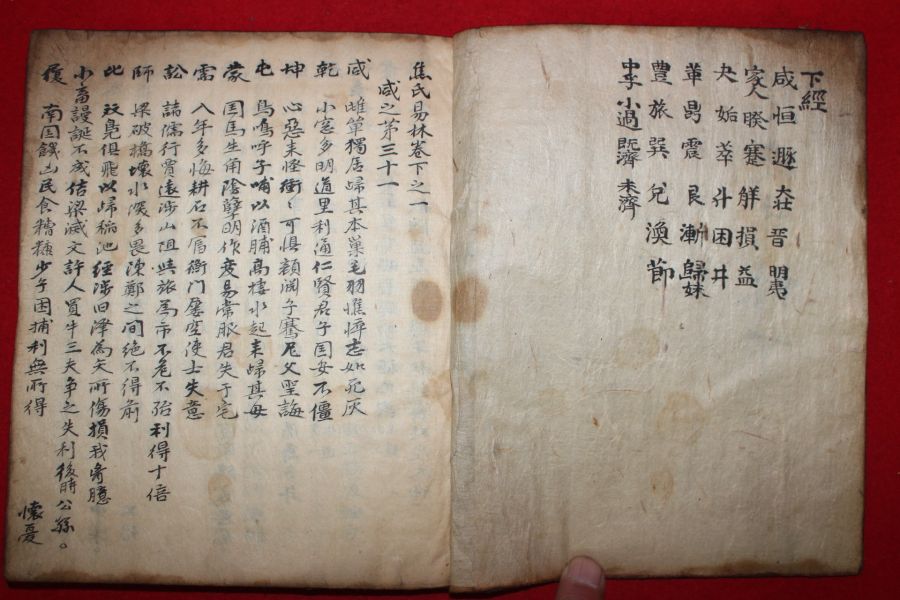 下經
咸恒遯大莊晋明夷
家人睽蹇觧損益
夬姤萃斗困井
革鼎震艮漸歸妹
豊旅巽兌渙節
中孚小過旣濟未濟
焦氏易林卷下之一
咸之第三十一
咸 雌單獨居歸其本巢毛羽憔悴志如死灰
乾 小窓多明道里利通仁賢君子国安不僵
坤 心惡來怪衝衝可惧顔淵子騫尼父聖誨
屯 鳥鳴呼子哺以酒脯高樓水起來歸其母
蒙 国馬生角陰孽明作变易常脈君失于宅
需 入年多悔耕石不富衡門屢空使士失意
訟 諸儒行賈遠涉山阻與旅為市不危不殆利得十倍
師 梁破橋壞水深多畏陳鄭之間絶不得前
比 双鳧俱飛以歸稻池經涉旧澤為矢所傷損我胷臆
小畜 謾誕不成倍梁滅文許人買牛三夫爭之失利後時公孫。
履 南国饑凶民食糟糠少子困捕利無所得
懷憂